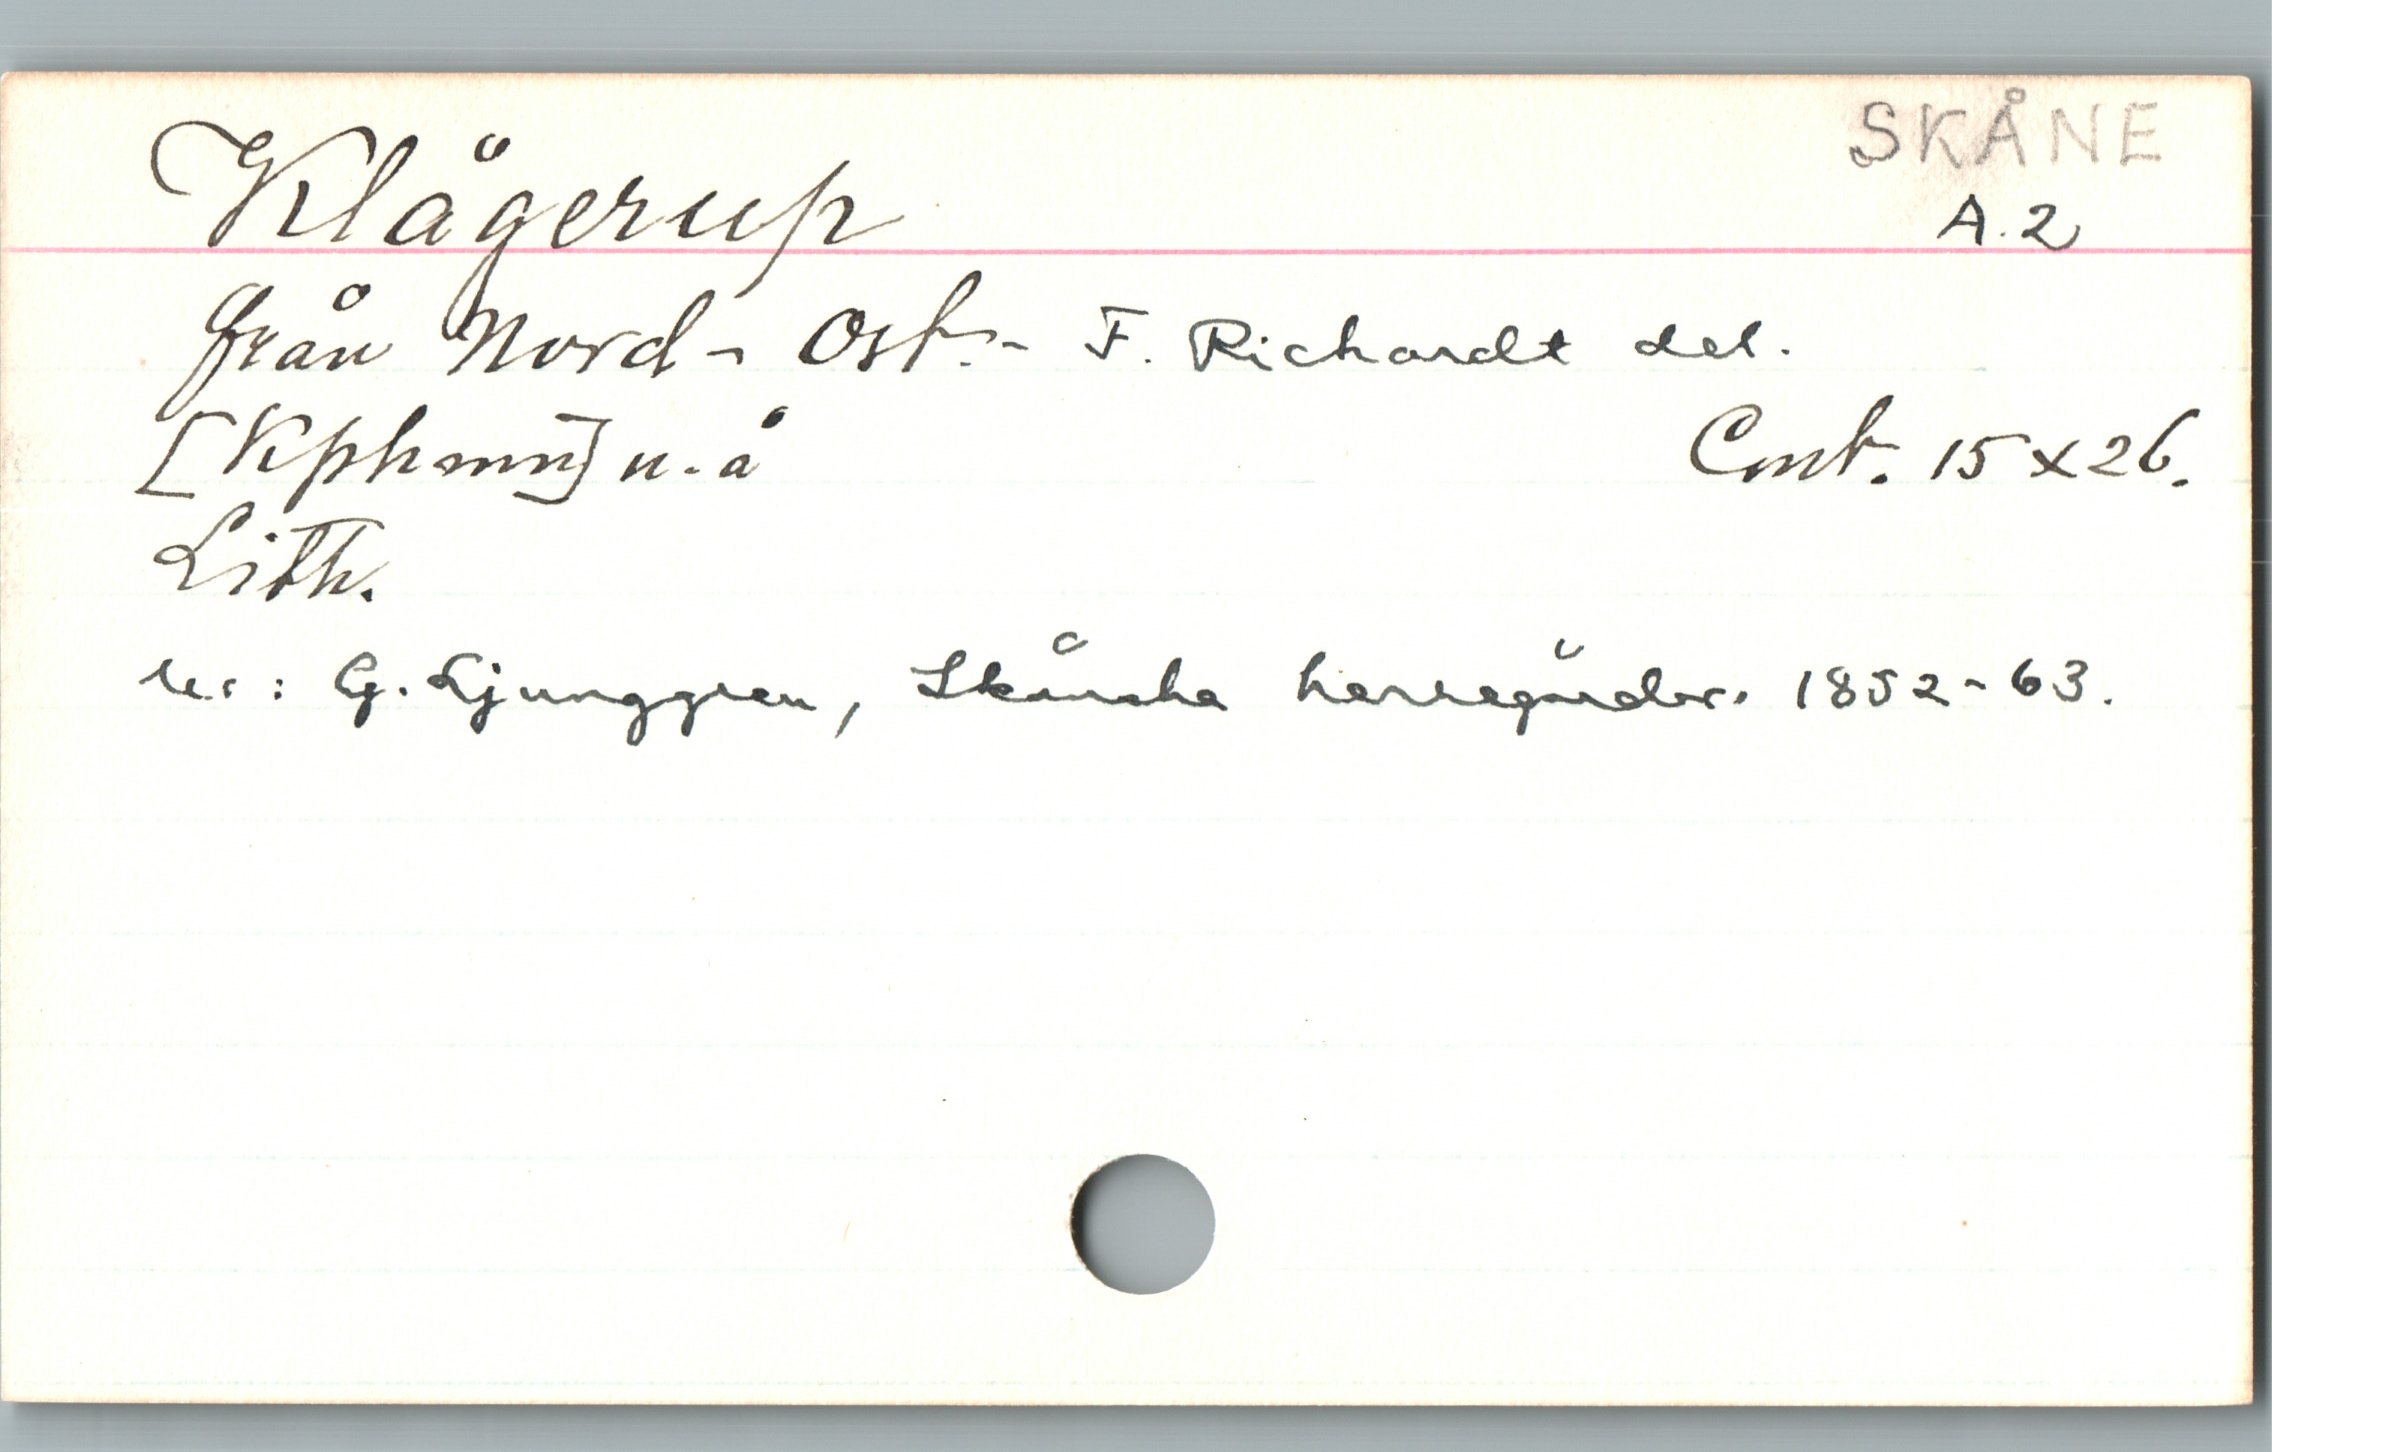 SKÅNE
Klägerup
A.2
från Nord-Ost.- F. Richardt del.
[Kphmn] u.å
Cent. 15x26.
Lith.
Ur: G. Ljunggren, Skånska herregårdar. 1852-63.